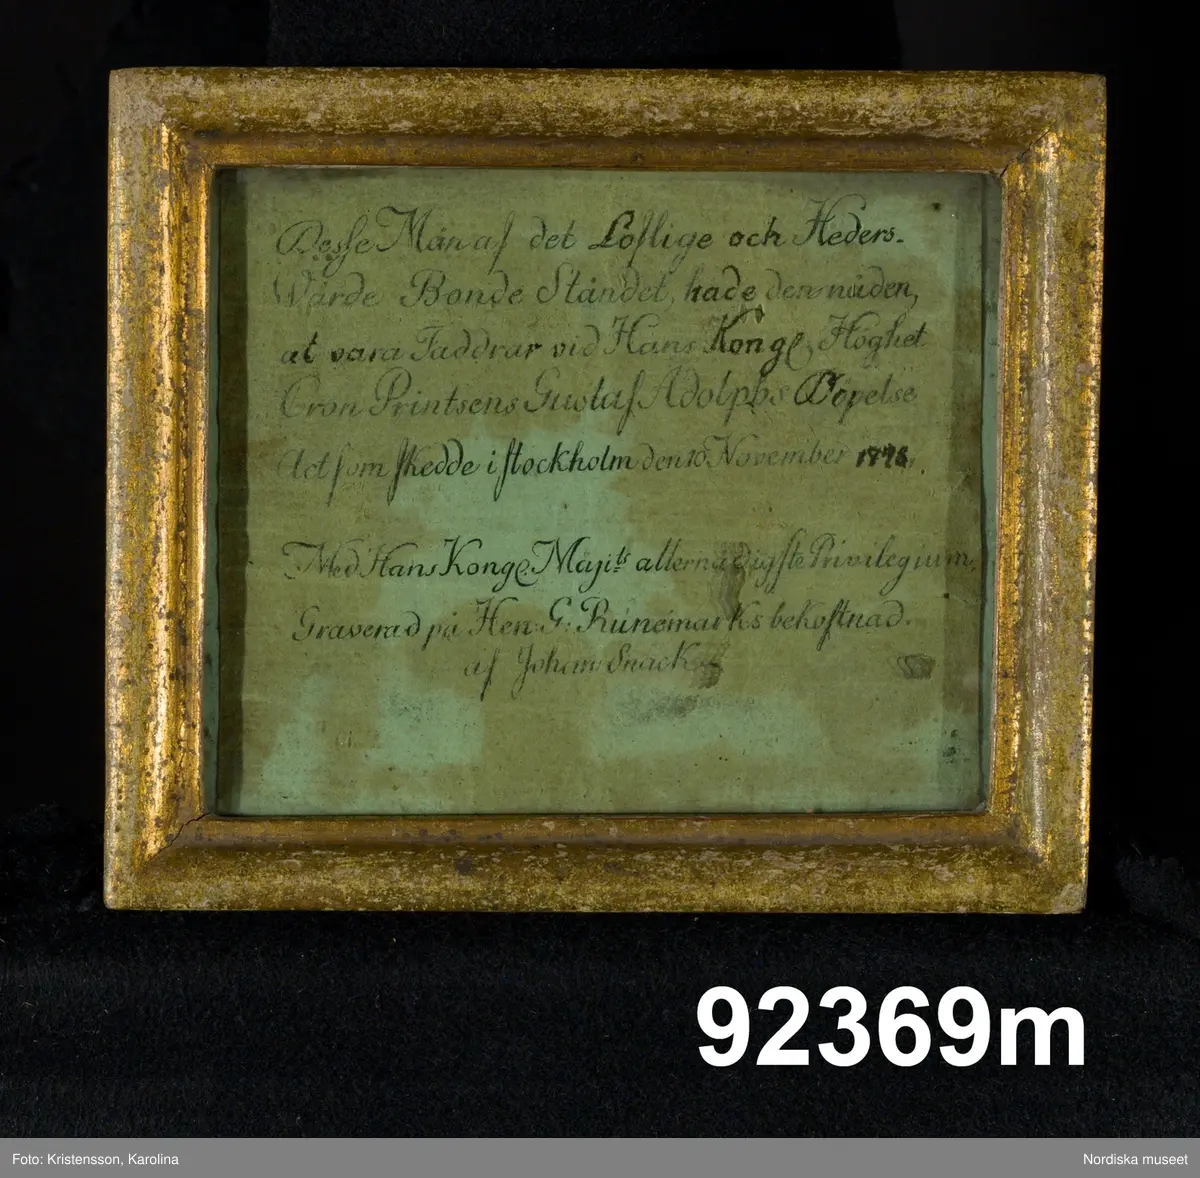 Desse Män af det Loflige och Heders-
Wärde Bonde Ståndet, hade den nåden,
at vara Faddrar vid Hans Kongl. Höghet
Cron Printsens Gustaf Adolphs Döpelse
det som skedde i stockholm den 10 November 1778.
Med Hans Kongl. Maji:ts allernådigste Privilegium,
Graverad på Hen: G: Rúnemarks bekostnad.
af Johan Snack
92369m
Foto: Kristensson, Karolina
Nordiska museet